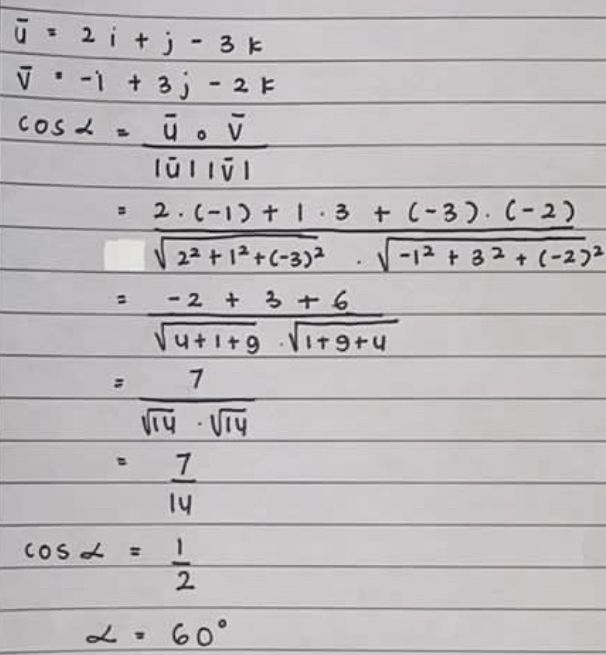 ū = 2i + j - 3k
v̄ = -i + 3j - 2k
cos α = ū ∘ v̄ / |ū| |v̄|
= 2 . (-1) + 1 . 3 + (-3) . (-2) / √(2² + 1² + (-3)²) . √(-1² + 3² + (-2)²)
= -2 + 3 + 6 / √(4+1+9) . √(1+9+4)
= 7 / √14 . √14
= 7 / 14
cos α = 1 / 2
α = 60°